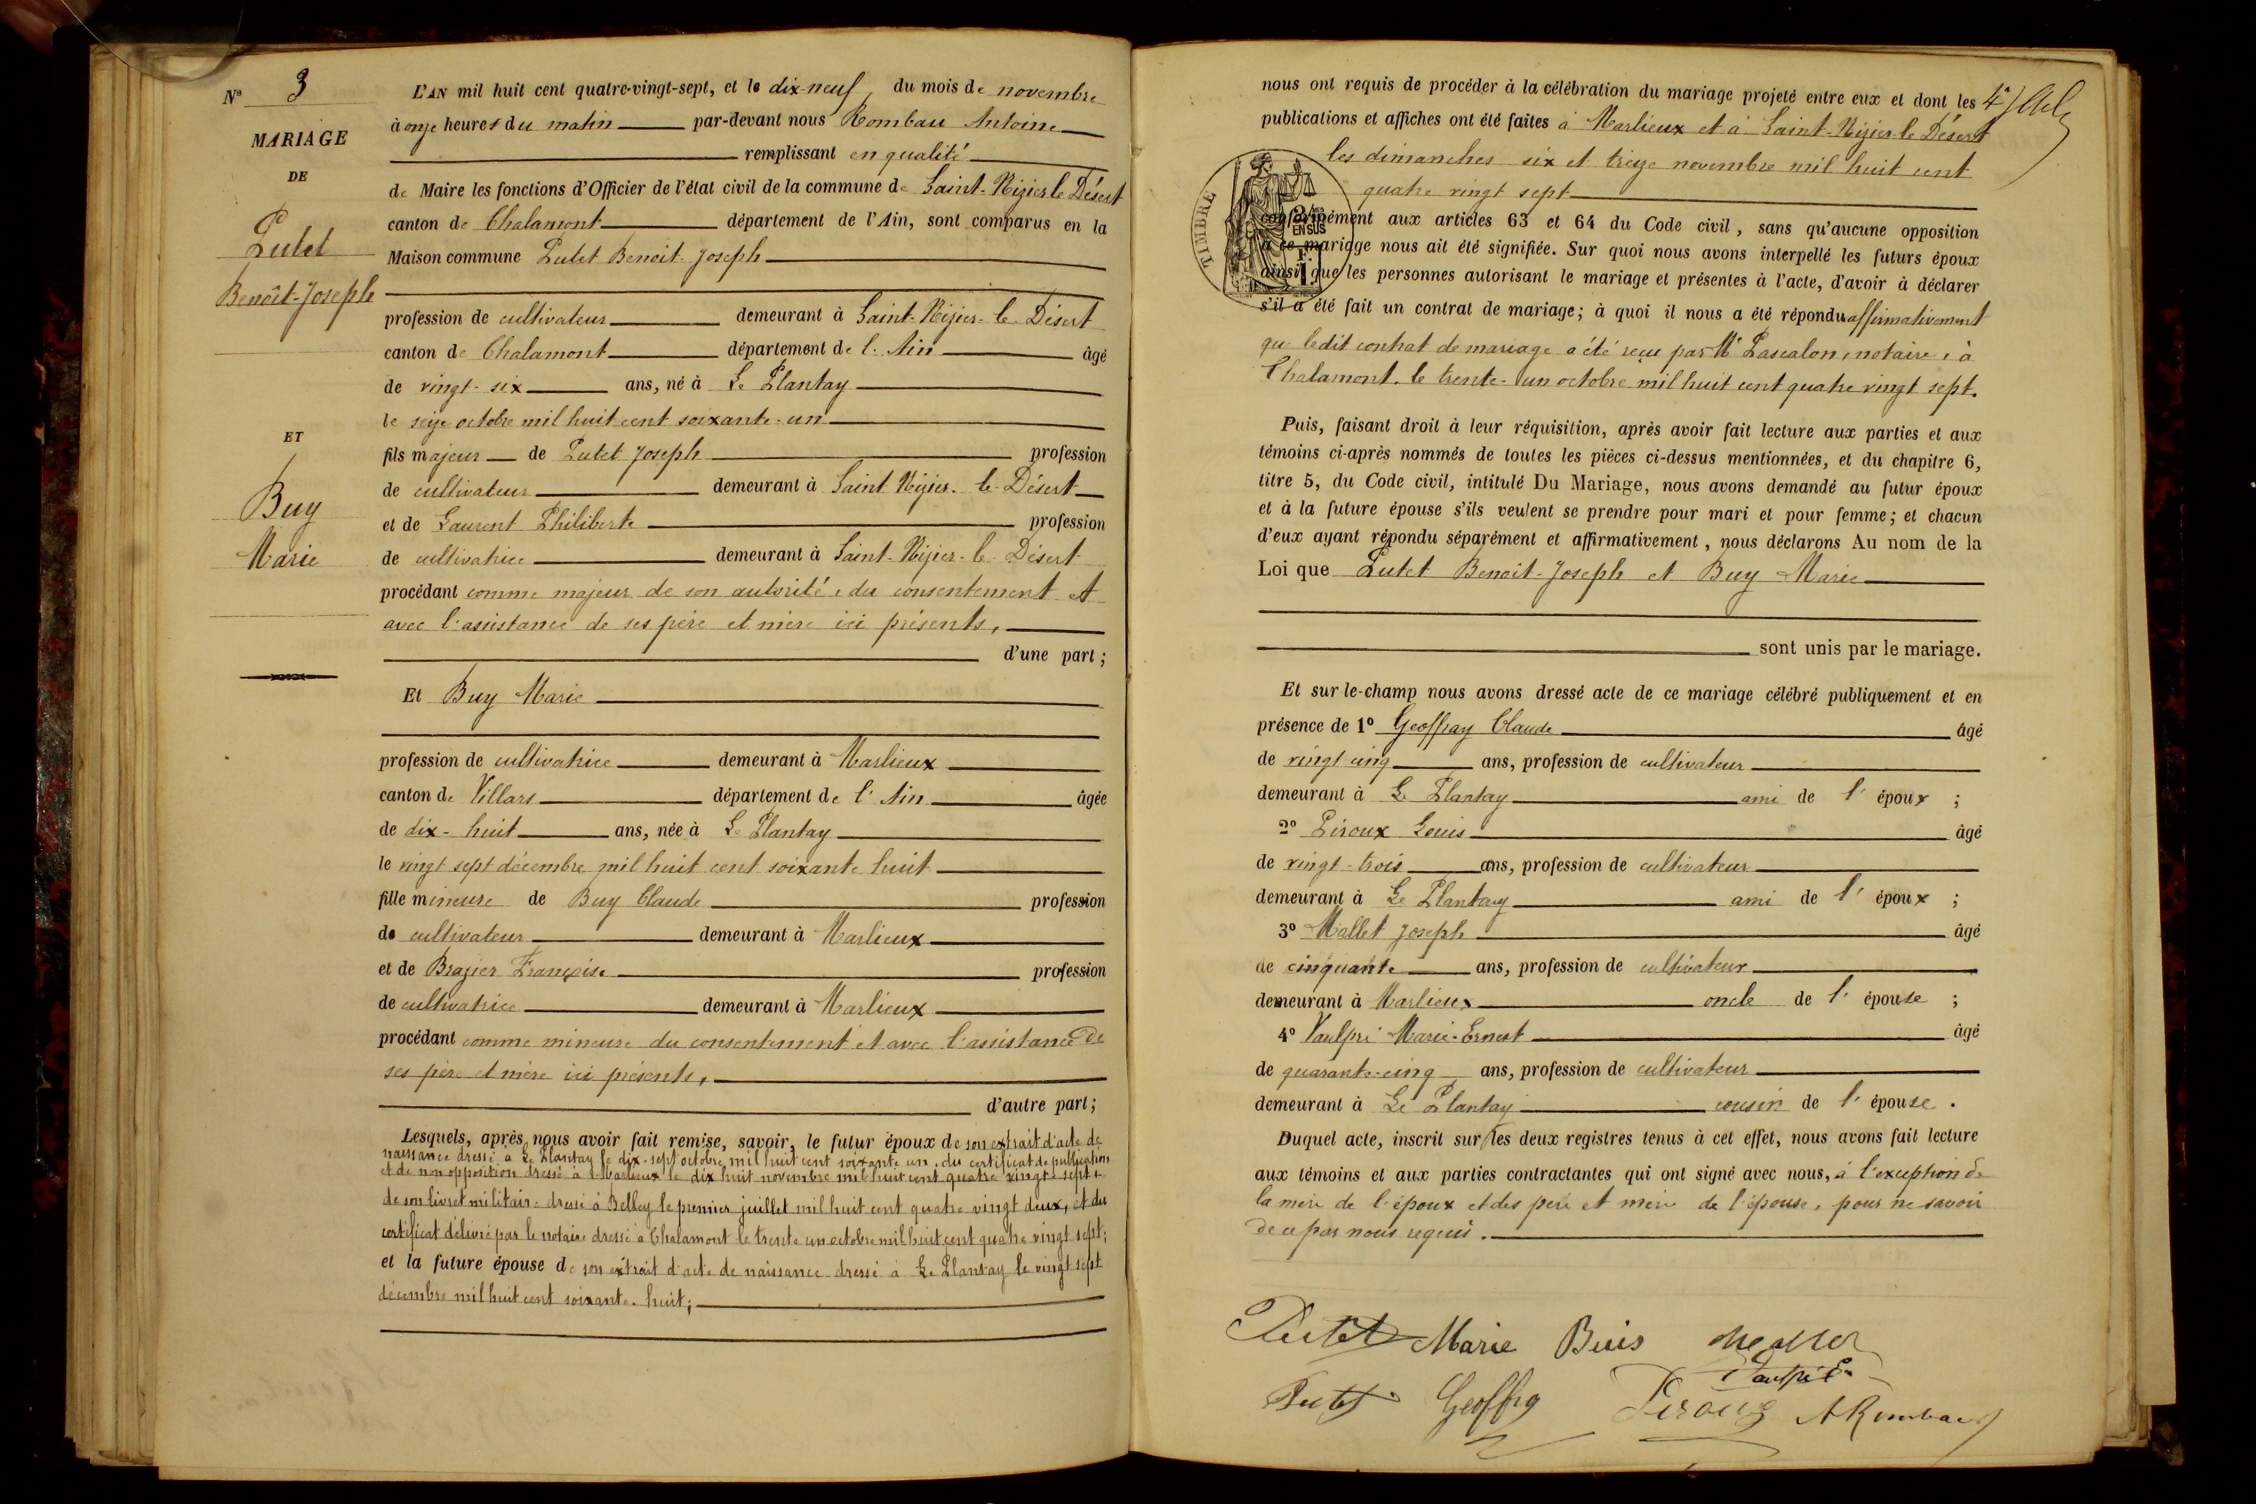 N° 3
MARIAGE
DE
Putet
Benoît-Joseph
ET
Buy
Marie
L'AN mil huit cent quatre-vingt-sept, et le dix-neuf du mois de novembre
à onze heures du matin par-devant nous Rombau Antoine
remplissant en qualité
de Maire les fonctions d'Officier de l'état civil de la commune de Saint-Nizier-le Désert
canton de Chalamont département de l'Ain, sont comparus en la
Maison commune Putet Benoit-Joseph
profession de cultivateur demeurant à Saint-Nizier-le-Désert
canton de Chalamont département de l'Ain âgé
de vingt-six ans, né à Le Plantay
le seize octobre mil huit cent soixante-un
fils majeur de Putet Joseph profession
de cultivateur demeurant à Saint Nizier-le-Désert
et de Laurent Philiberte profession
de cultivatrice demeurant à Saint-Nizier-le-Désert
procédant comme majeur de son autorité, du consentement et
avec l'assistance de ses père et mère ici présents,
d'une part;
Et Buy Marie
profession de cultivatrice demeurant à Marlieux
canton de Villars département de l'Ain âgée
de dix-huit ans, née à Le Plantay
le vingt sept décembre mil huit cent soixante huit
fille mineure de Buy Claude profession
de cultivateur demeurant à Marlieux
et de Brazier Françoise profession
de cultivatrice demeurant à Marlieux
procédant comme mineure du consentement et avec l'assistance de
ses père et mère ici présents,
d'autre part;
Lesquels, après nous avoir fait remise, savoir, le futur époux de son extrait d'acte de
naissance dressé à Le Plantay le dix-sept octobre mil huit cent soixante un, du certificat de publication
et de non opposition dressé à Marlieux le dix huit novembre mil huit cent quatre vingt sept,
de son livret militaire dressé à Belley le premier juillet mil huit cent quatre vingt deux, et du
certificat délivré par le notaire dressé à Chalamont le trente un octobre mil huit cent quatre vingt sept;
et la future épouse de son extrait d'acte de naissance dressé à Le Plantay le vingt sept
décembre mil huit cent soixante-huit;
nous ont requis de procéder à la célébration du mariage projeté entre eux et dont les
publications et affiches ont été faites à Marlieux et à Saint-Nizier-le Désert
les dimanches six et treize novembre mil huit cent
quatre vingt sept
TIMBRE
EN SUS
conformément aux articles 63 et 64 du Code civil, sans qu'aucune opposition
à ce mariage nous ait été signifiée. Sur quoi nous avons interpellé les futurs époux
ainsi que les personnes autorisant le mariage et présentes à l'acte, d'avoir à déclarer
s'il a été fait un contrat de mariage; à quoi il nous a été répondu affirmativement
que ledit contrat de mariage a été reçu par Me Pascalon, notaire, à
Chalamont, le trente-un octobre mil huit cent quatre vingt sept.
Puis, faisant droit à leur réquisition, après avoir fait lecture aux parties et aux
témoins ci-après nommés de toutes les pièces ci-dessus mentionnées, et du chapitre 6,
titre 5, du Code civil, intitulé Du Mariage, nous avons demandé au futur époux
et à la future épouse s'ils veulent se prendre pour mari et pour femme; et chacun
d'eux ayant répondu séparément et affirmativement, nous déclarons Au nom de la
Loi que Putet Benoit-Joseph et Buy Marie
sont unis par le mariage.
Et sur-le-champ nous avons dressé acte de ce mariage célébré publiquement et en
présence de 1° Geoffray Claude âgé
de vingt cinq ans, profession de cultivateur
demeurant à Le Plantay ami de l'époux ;
2° Piroux Louis âgé
de vingt-trois ans, profession de cultivateur
demeurant à Le Plantay ami de l'époux ;
3° Mallet Joseph âgé
de cinquante ans, profession de cultivateur
demeurant à Marlieux oncle de l'épouse ;
4° Vaulpré Marie-Ernest âgé
de quarante-cinq ans, profession de cultivateur
demeurant à Le Plantay cousin de l'épouse.
Duquel acte, inscrit sur les deux registres tenus à cet effet, nous avons fait lecture
aux témoins et aux parties contractantes qui ont signé avec nous, à l'exception de
la mère de l'époux et des père et mère de l'épouse, pour ne savoir
de ce par nous requis.
Putet Marie Buis Mallet
Vaulpré E.
Putet Geoffray Piroux A Rombau